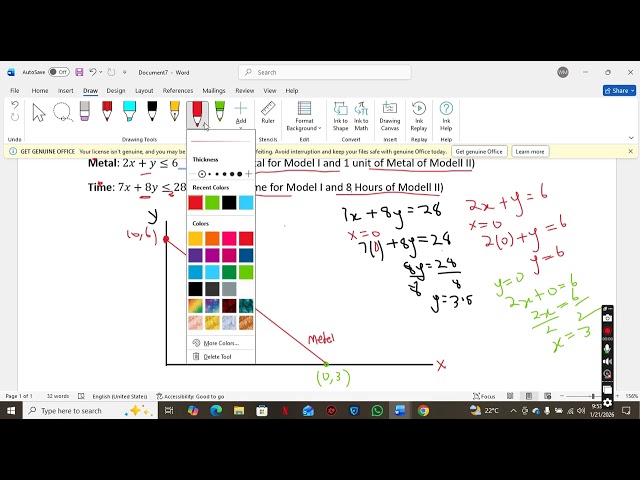 AutoSave Off Document7 - Word Search MM
File Home Insert Draw Design Layout References Mailings Review View Help Comments Editing Share
Undo Drawing Tools Add Ruler Format Background Ink to Shape Ink to Math Drawing Canvas Ink Replay Ink Help
Stencils Edit Convert Insert Replay Help
GET GENUINE OFFICE Your license isn't genuine, and you may be feiting. Avoid interruption and keep your files safe with genuine Office today. Get genuine Office Learn more
Metal: 2x + y ≤ 6 tal for Model I and 1 unit of Metal of Modell II)
Time: 7x + 8y ≤ 28 me for Model I and 8 Hours of Modell II)
Thickness
Recent Colors
Colors
More Colors...
Delete Tool
y
(0,6)
Metal
(0,3)
x
7x + 8y = 28
x = 0
7(0) + 8y = 28
8y = 28
8 8
y = 3.5
2x + y = 6
x = 0
2(0) + y = 6
y = 6
y = 0
2x + 0 = 6
2x = 6
2 2
x = 3
Page 1 of 1 32 words English (United States) Accessibility: Good to go Focus 150%
Type here to search 22°C 9:53
1/21/2026